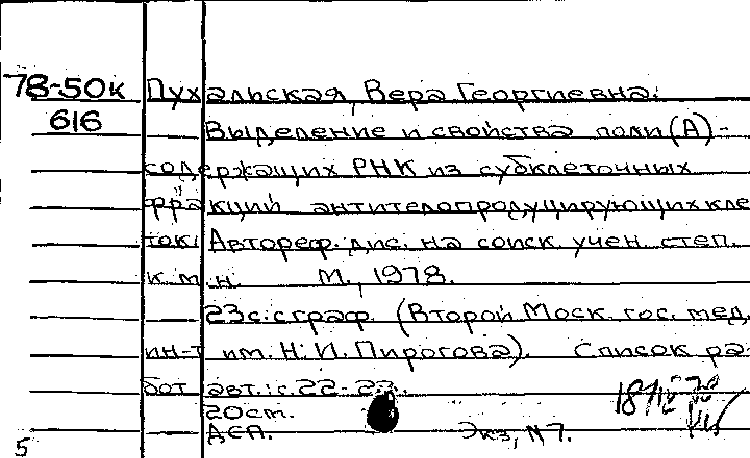 78-50к Пухальская, Вера Георгиевна.
616 Выделение и свойства поли(А)-
содержащих РНК из субклеточных
фракций антителопродуцирующих кле
ток: Автореф. дис. на соиск. учен. степ.
к.м.н. М., 1978.
23с. с граф. (Второй Моск. гос. мед.
ин-т им. Н.И. Пирогова). Список ра
бот авт.: с. 22-23.
20см.
ДСП. Экз, N7.
5